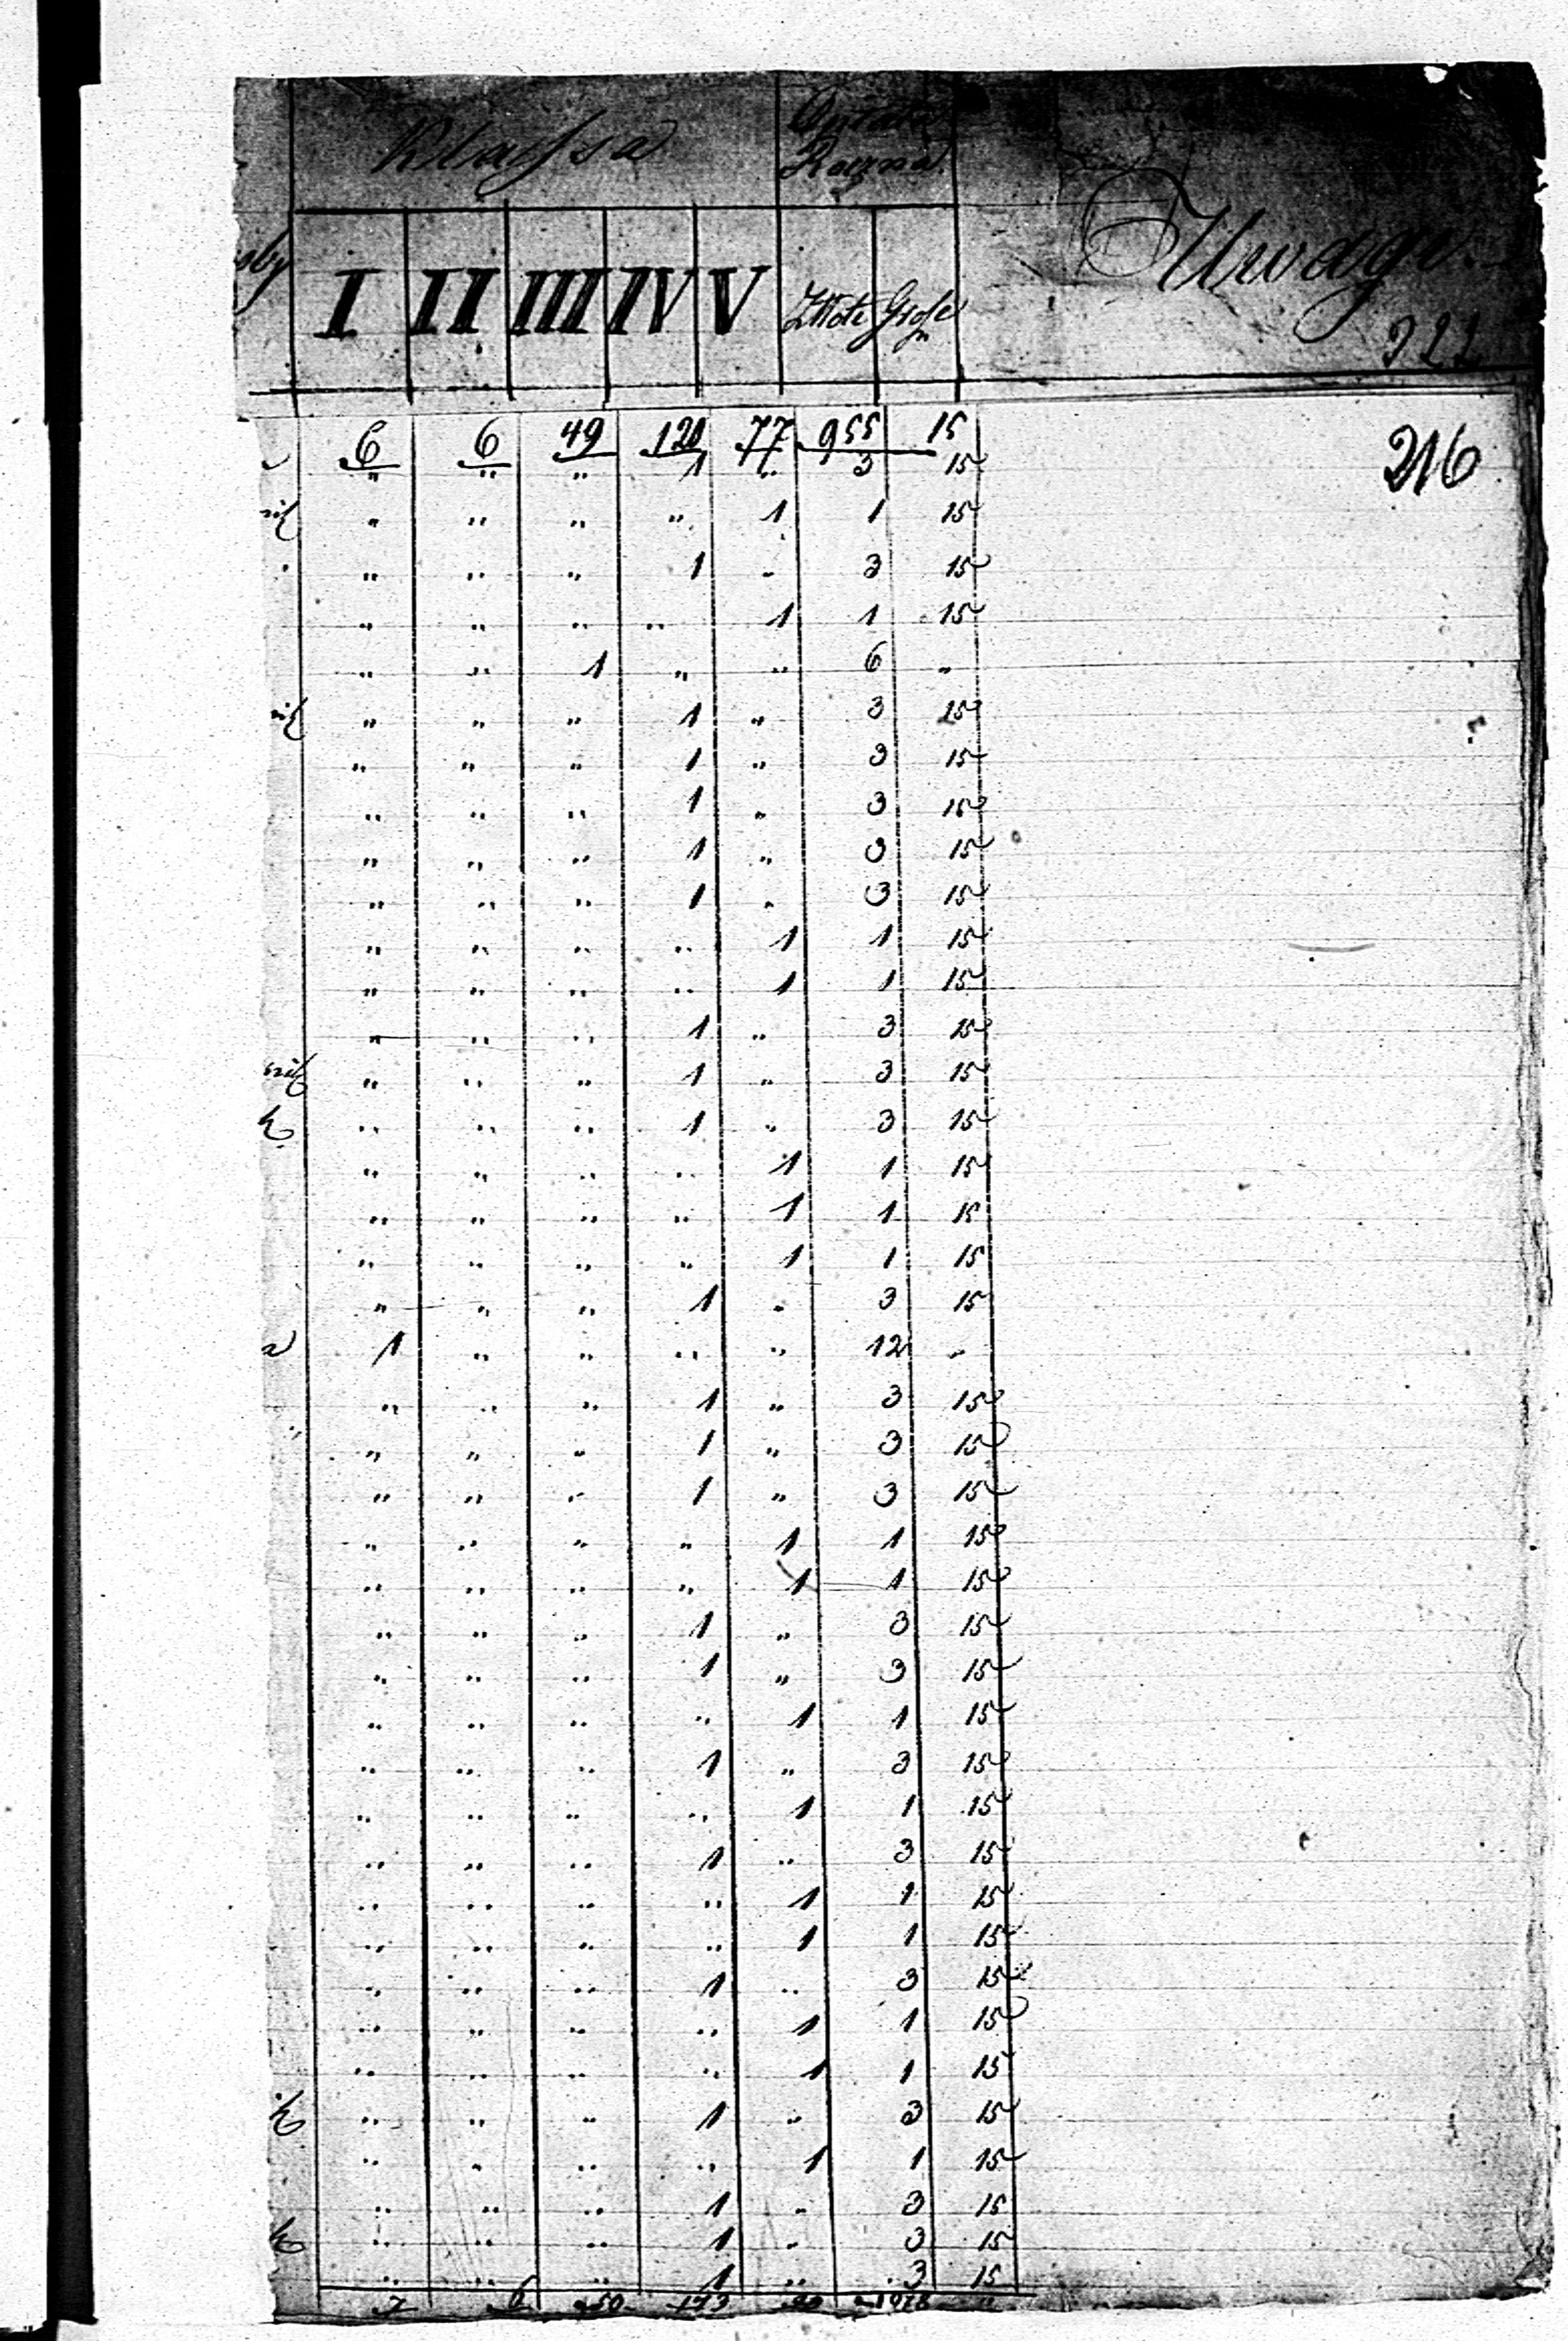 Klassa
Roczna
Uwagi
I II III IV V Złote Grosze
6 6 49 120 77 955 15
216
" " " 1 " 3 15
" " " " 1 1 15
" " " 1 " 3 15
" " " " 1 1 15
" " 1 " " 6 "
" " " 1 " 3 15
" " " 1 " 3 15
" " " 1 " 3 15
" " " 1 " 3 15
" " " 1 " 3 15
" " " " 1 1 15
" " " " 1 1 15
" " " 1 " 3 15
" " " 1 " 3 15
" " " 1 " 3 15
" " " " 1 1 15
" " " " 1 1 15
" " " " 1 1 15
" " " 1 " 3 15
1 " " " " 12 "
" " " 1 " 3 15
" " " 1 " 3 15
" " " 1 " 3 15
" " " " 1 1 15
" " " " 1 1 15
" " " 1 " 3 15
" " " 1 " 3 15
" " " " 1 1 15
" " " 1 " 3 15
" " " " 1 1 15
" " " 1 " 3 15
" " " " 1 1 15
" " " " 1 1 15
" " " 1 " 3 15
" " " " 1 1 15
" " " " 1 1 15
" " " 1 " 3 15
" " " " 1 1 15
" " " 1 " 3 15
" " " 1 " 3 15
" " " 1 " 3 15
7 6 50